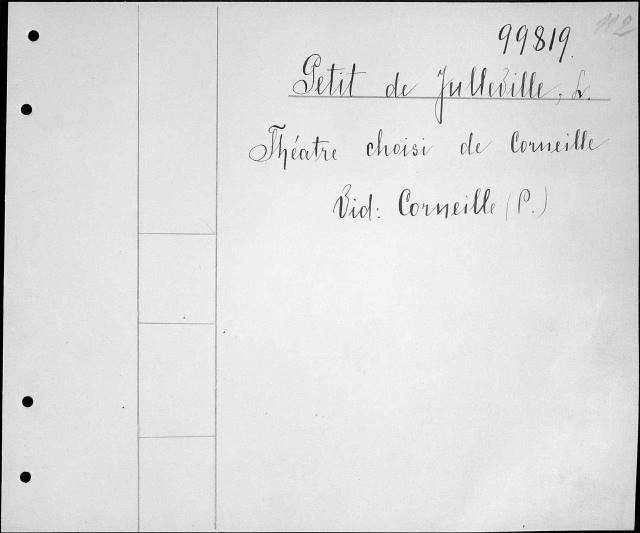 112
99819.
Petit de Julleville, L.
Théatre choisi de Corneille
Vid: Corneille (P.)